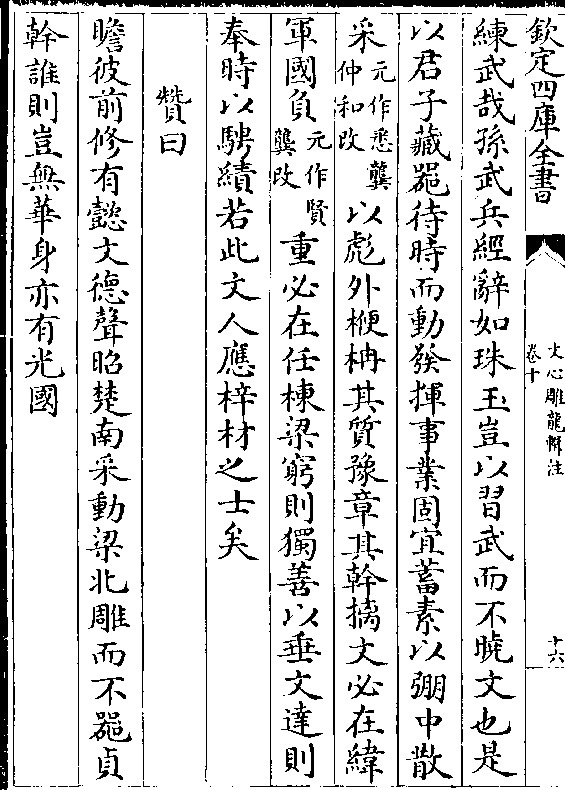 欽定四庫全書
文心雕龍輯注
卷十
十六
練武哉孫武兵經辭如珠玉豈以習武而不曉文也是
以君子藏器待時而動發揮事業固宜蓄素以弸中散
采元作悉龔仲和改以彪外楩柟其質豫章其幹摛文必在緯
軍國負元作賢龔改重必在任棟梁窮則獨善以垂文達則
奉時以騁績若此文人應梓材之士矣
贊曰
瞻彼前修有懿文德聲昭楚南采動梁北雕而不器貞
幹誰則豈無華身亦有光國